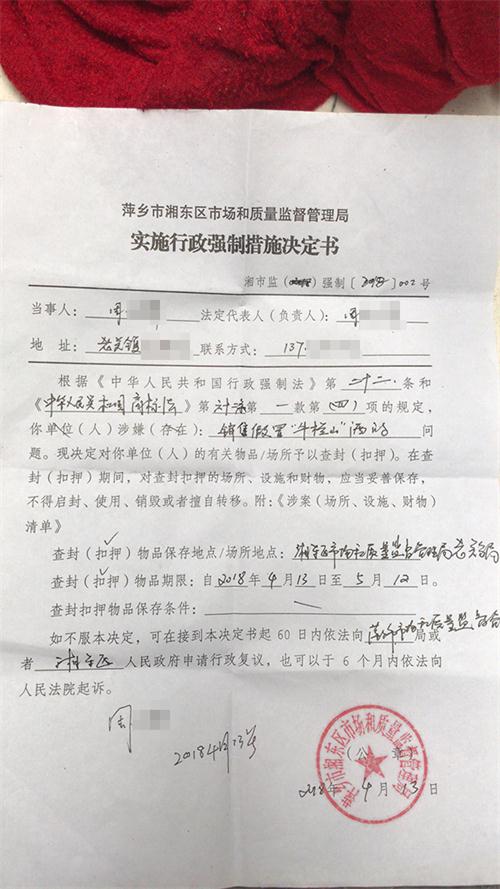 萍乡市湘东区市场和质量监督管理局
实施行政强制措施决定书
湘市监( )强制[2018]002号
当事人：周 法定代表人（负责人）：周
地 址：老关镇 联系方式：137
根据《中华人民共和国行政强制法》第二十二条和
《中华人民共和国商标法》第 条第一款第(四)项的规定，
你单位（人）涉嫌（存在）：销售假冒"牛栏山"酒的 问
题。现决定对你单位（人）的有关物品/场所予以查封（扣押）。在查
封（扣押）期间，对查封扣押的场所、设施和财物，应当妥善保存，
不得启封、使用、销毁或者擅自转移。附：《涉案（场所、设施、财物）
清单》
查封（扣押）物品保存地点/场所地点：湘东区市场和质量监督管理局老关分局
查封（扣押）物品期限：自2018年4月13日至5月12日。
查封扣押物品保存条件：
如不服本决定，可在接到本决定书起60日内依法向萍乡市市场和质量监督管理局或
者 湘东区 人民政府申请行政复议，也可以于6个月内依法向
人民法院起诉。
周
2018 4月13号
（公 章）
萍乡市湘东区市场和质量监督管理局
2018年4月13日